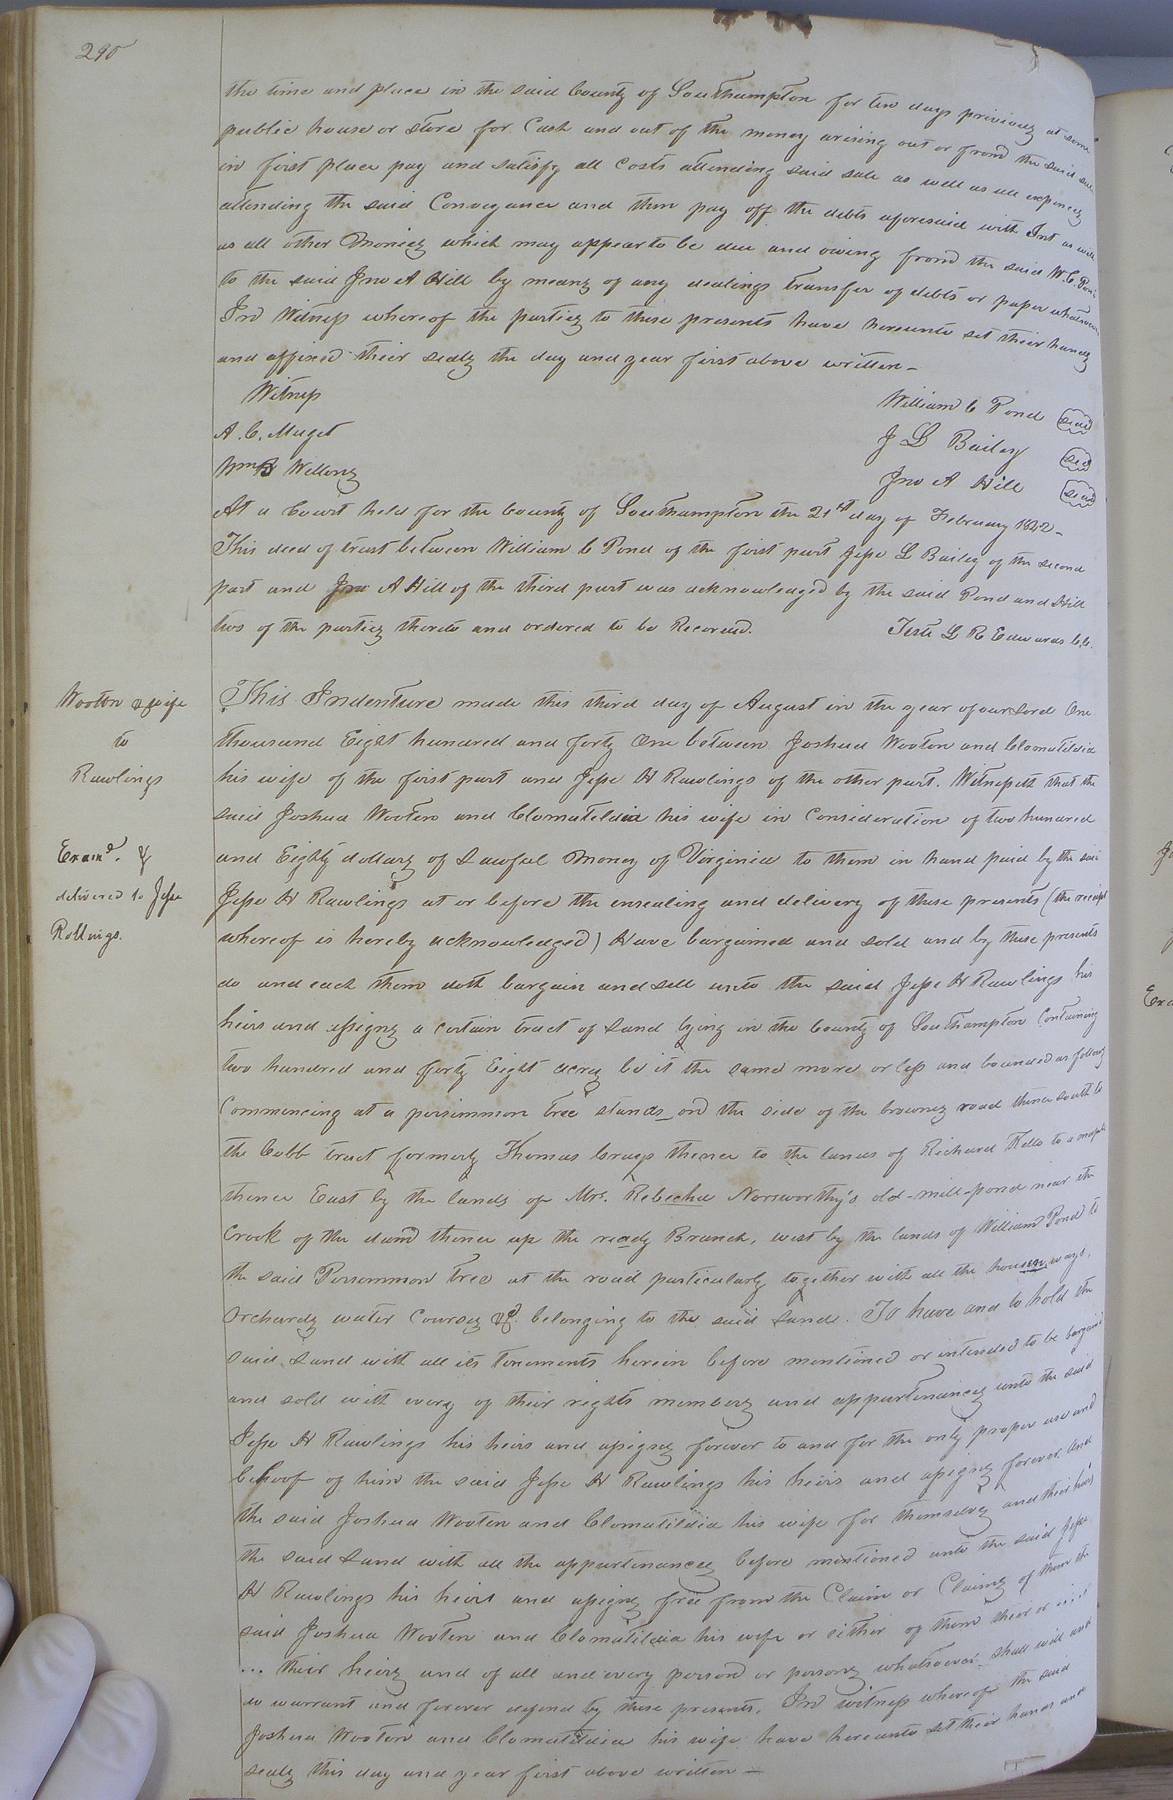 290
the time and place in the said County of Southampton for ten days previous at some
public house or store for Cash and out of the money arising out or from the said sale
in first place pay and satisfy all Costs attending said sale as well as all expences
attending the said Conveyance and then pay off the debts aforesaid with Int as well
as all other Moniez which may appear to be due and owing from the said W. C. Pond
to the said Jno A Hill by means of any dealings transfer of debts or paper whatsoever
In Witness whereof the parties to these presents have hereunto set their hands
and affixed their seals the day and year first above written —
Witness
William C Pond seal
A. C. Muget
J L Bailey seal
Wm B Wellons
Jno A Hill seal
At a Court held for the County of Southampton the 21st day of February 1842 —
This deed of trust between William C Pond of the first part Jesse L Bailey of the second
part and Jno A Hill of the third part was acknowledged by the said Pond and Hill
two of the parties thereto and ordered to be Recorded.
Teste L R Edwards C.C.
Wooten & wife
to
Rawlings
Examd. &
delivered to Jesse
Rollings.
This Indenture made this third day of August in the year of our Lord One
thousand Eight hundred and forty One between Joshua Wooten and Clomatildia
his wife of the first part and Jesse H Rawlings of the other part. Witnesseth that the
said Joshua Wooten and Clomatildia his wife in Consideration of two hundred
and Eighty dollars of Lawful Money of Virginia to them in hand paid by the said
Jesse H Rawlings at or before the ensealing and delivery of these presents (the receipt
whereof is hereby acknowledged) Have bargained and sold and by these presents
do and each them doth bargain and sell unto the said Jesse H Rawlings his
heirs and assigns a certain tract of Land lying in the County of Southampton Containing
two hundred and forty Eight acres be it the same more or less and bounded as follows
Commencing at a persimmon tree stands on the side of the browns road thence south to
the Cobb tract formerly Thomas Grays thence to the lands of Richard Kello to a maple
thence East by the lands of Mrs. Rebecha Norsworthy's old-mill-pond near the
Crook of the dam thence up the ready Branch, west by the lands of William Pond to
the said Persommon tree at the road particularly together with all the housen ways,
orchards water Courses &c. belonging to the said Land. To have and to hold the
said Land with all its tenements herein before mentioned or intended to be bargained
and sold with every of their rights members and appurtenances unto the said
Jesse H Rawlings his heirs and assigns forever to and for the only proper use and
behoof of him the said Jesse H Rawlings his heirs and assigns forever. And
the said Joshua Wooten and Clomatildia his wife for themselves and their heirs
the said Land with all the appurtenances before mentioned unto the said Jesse
H Rawlings his heirs and assigns free from the Claim or Claims of them the
said Joshua Wooten and Clomatildia his wife or either of them their or ....
... their heirs and of all and every person or persons whatsoever shall will and
do warrant and forever defend by these presents. In witness whereof the said
Joshua Wooten and Clomatildia his wife have hereunto set their hands and
seals this day and year first above written —